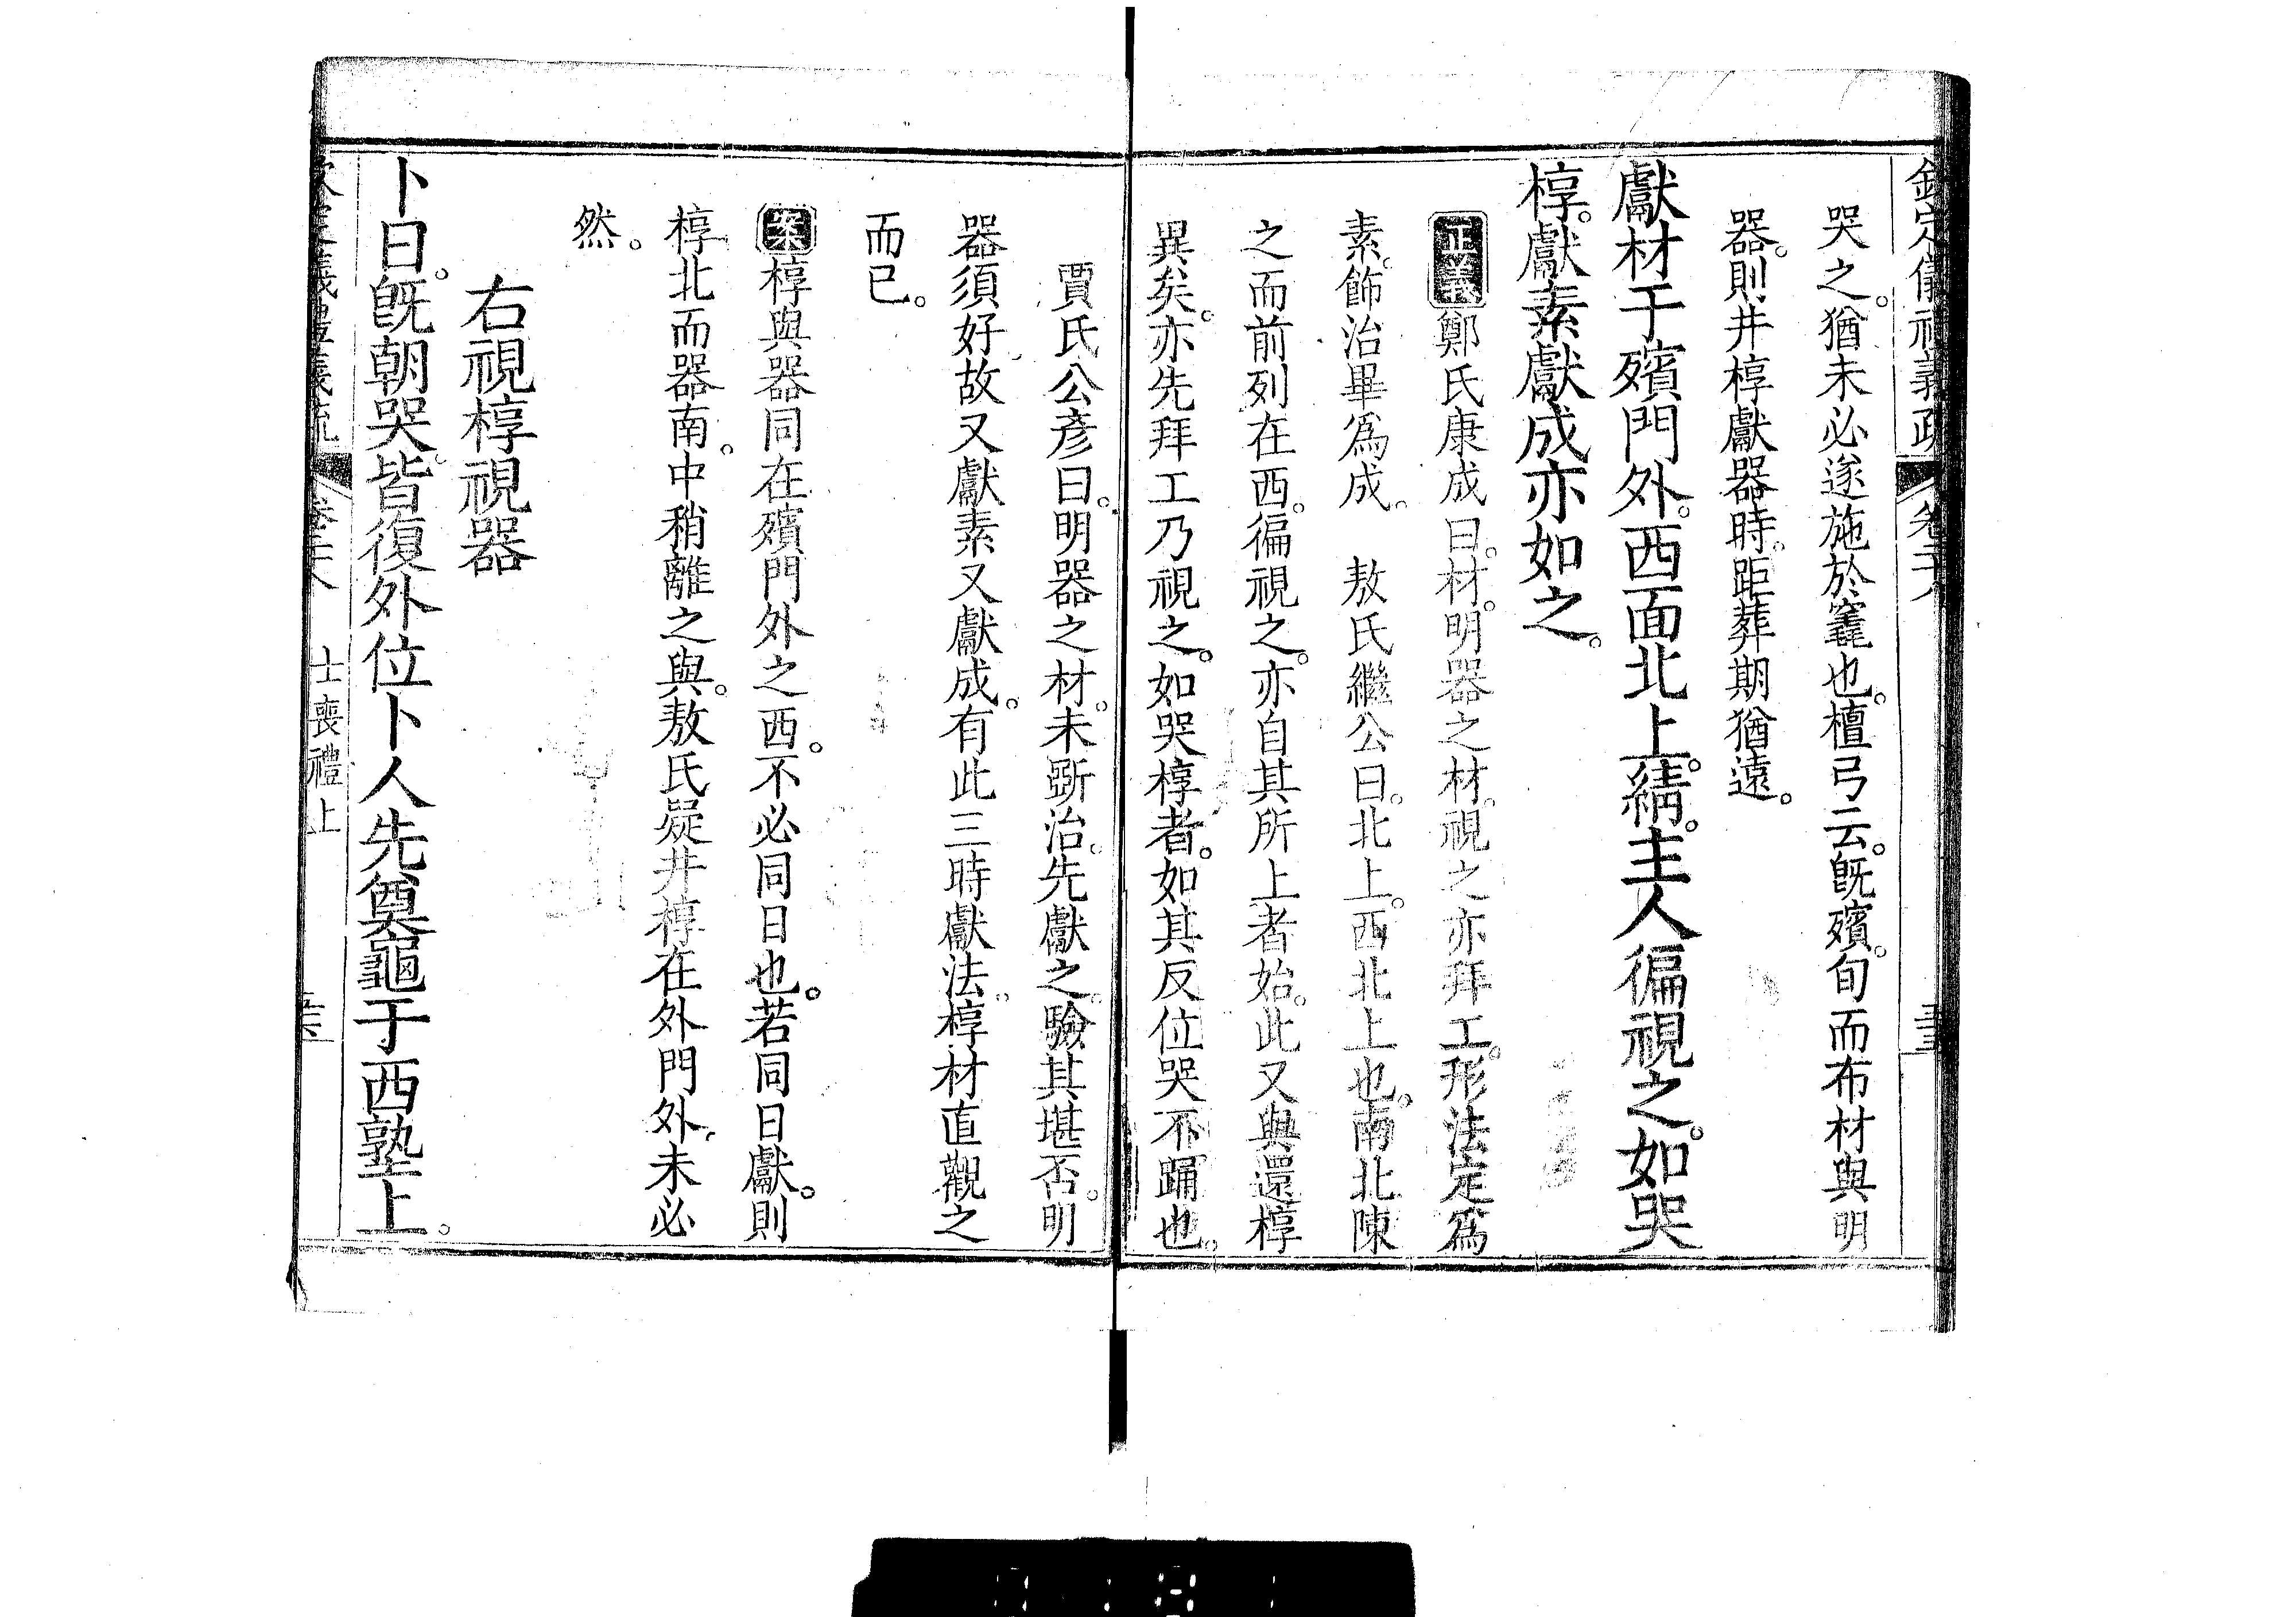 欽定儀禮義疏 卷二十八
哭之。猶未必遂施於竁也。檀弓云。旣殯。旬而布材與明
器。則井椁獻器時。距葬期猶遠。
獻材于殯門外。西面北上。綪。主人徧視之。如哭
椁。獻素獻成亦如之。
正義鄭氏康成曰。材。明器之材。視之亦拜工。形法定爲
素。飾治畢爲成。 敖氏繼公曰。北上。西北上也。南北陳
之而前列在西。徧視之。亦自其所上者始。此又與還椁
異矣。亦先拜工乃視之。如哭椁者。如其反位哭不踊也。
賈氏公彥曰。明器之材。未斲治。先獻之。驗其堪否。明
器須好。故又獻素又獻成。有此三時獻法。椁材直觀之
而已。
案椁與器同在殯門外之西。不必同日也。若同日獻。則
椁北而器南。中稍離之與。敖氏疑井椁在外門外。未必
然。
右視椁視器
卜日。旣朝哭。皆復外位。卜人先奠龜于西塾上。
欽定儀禮義疏 卷二十八 士喪禮上